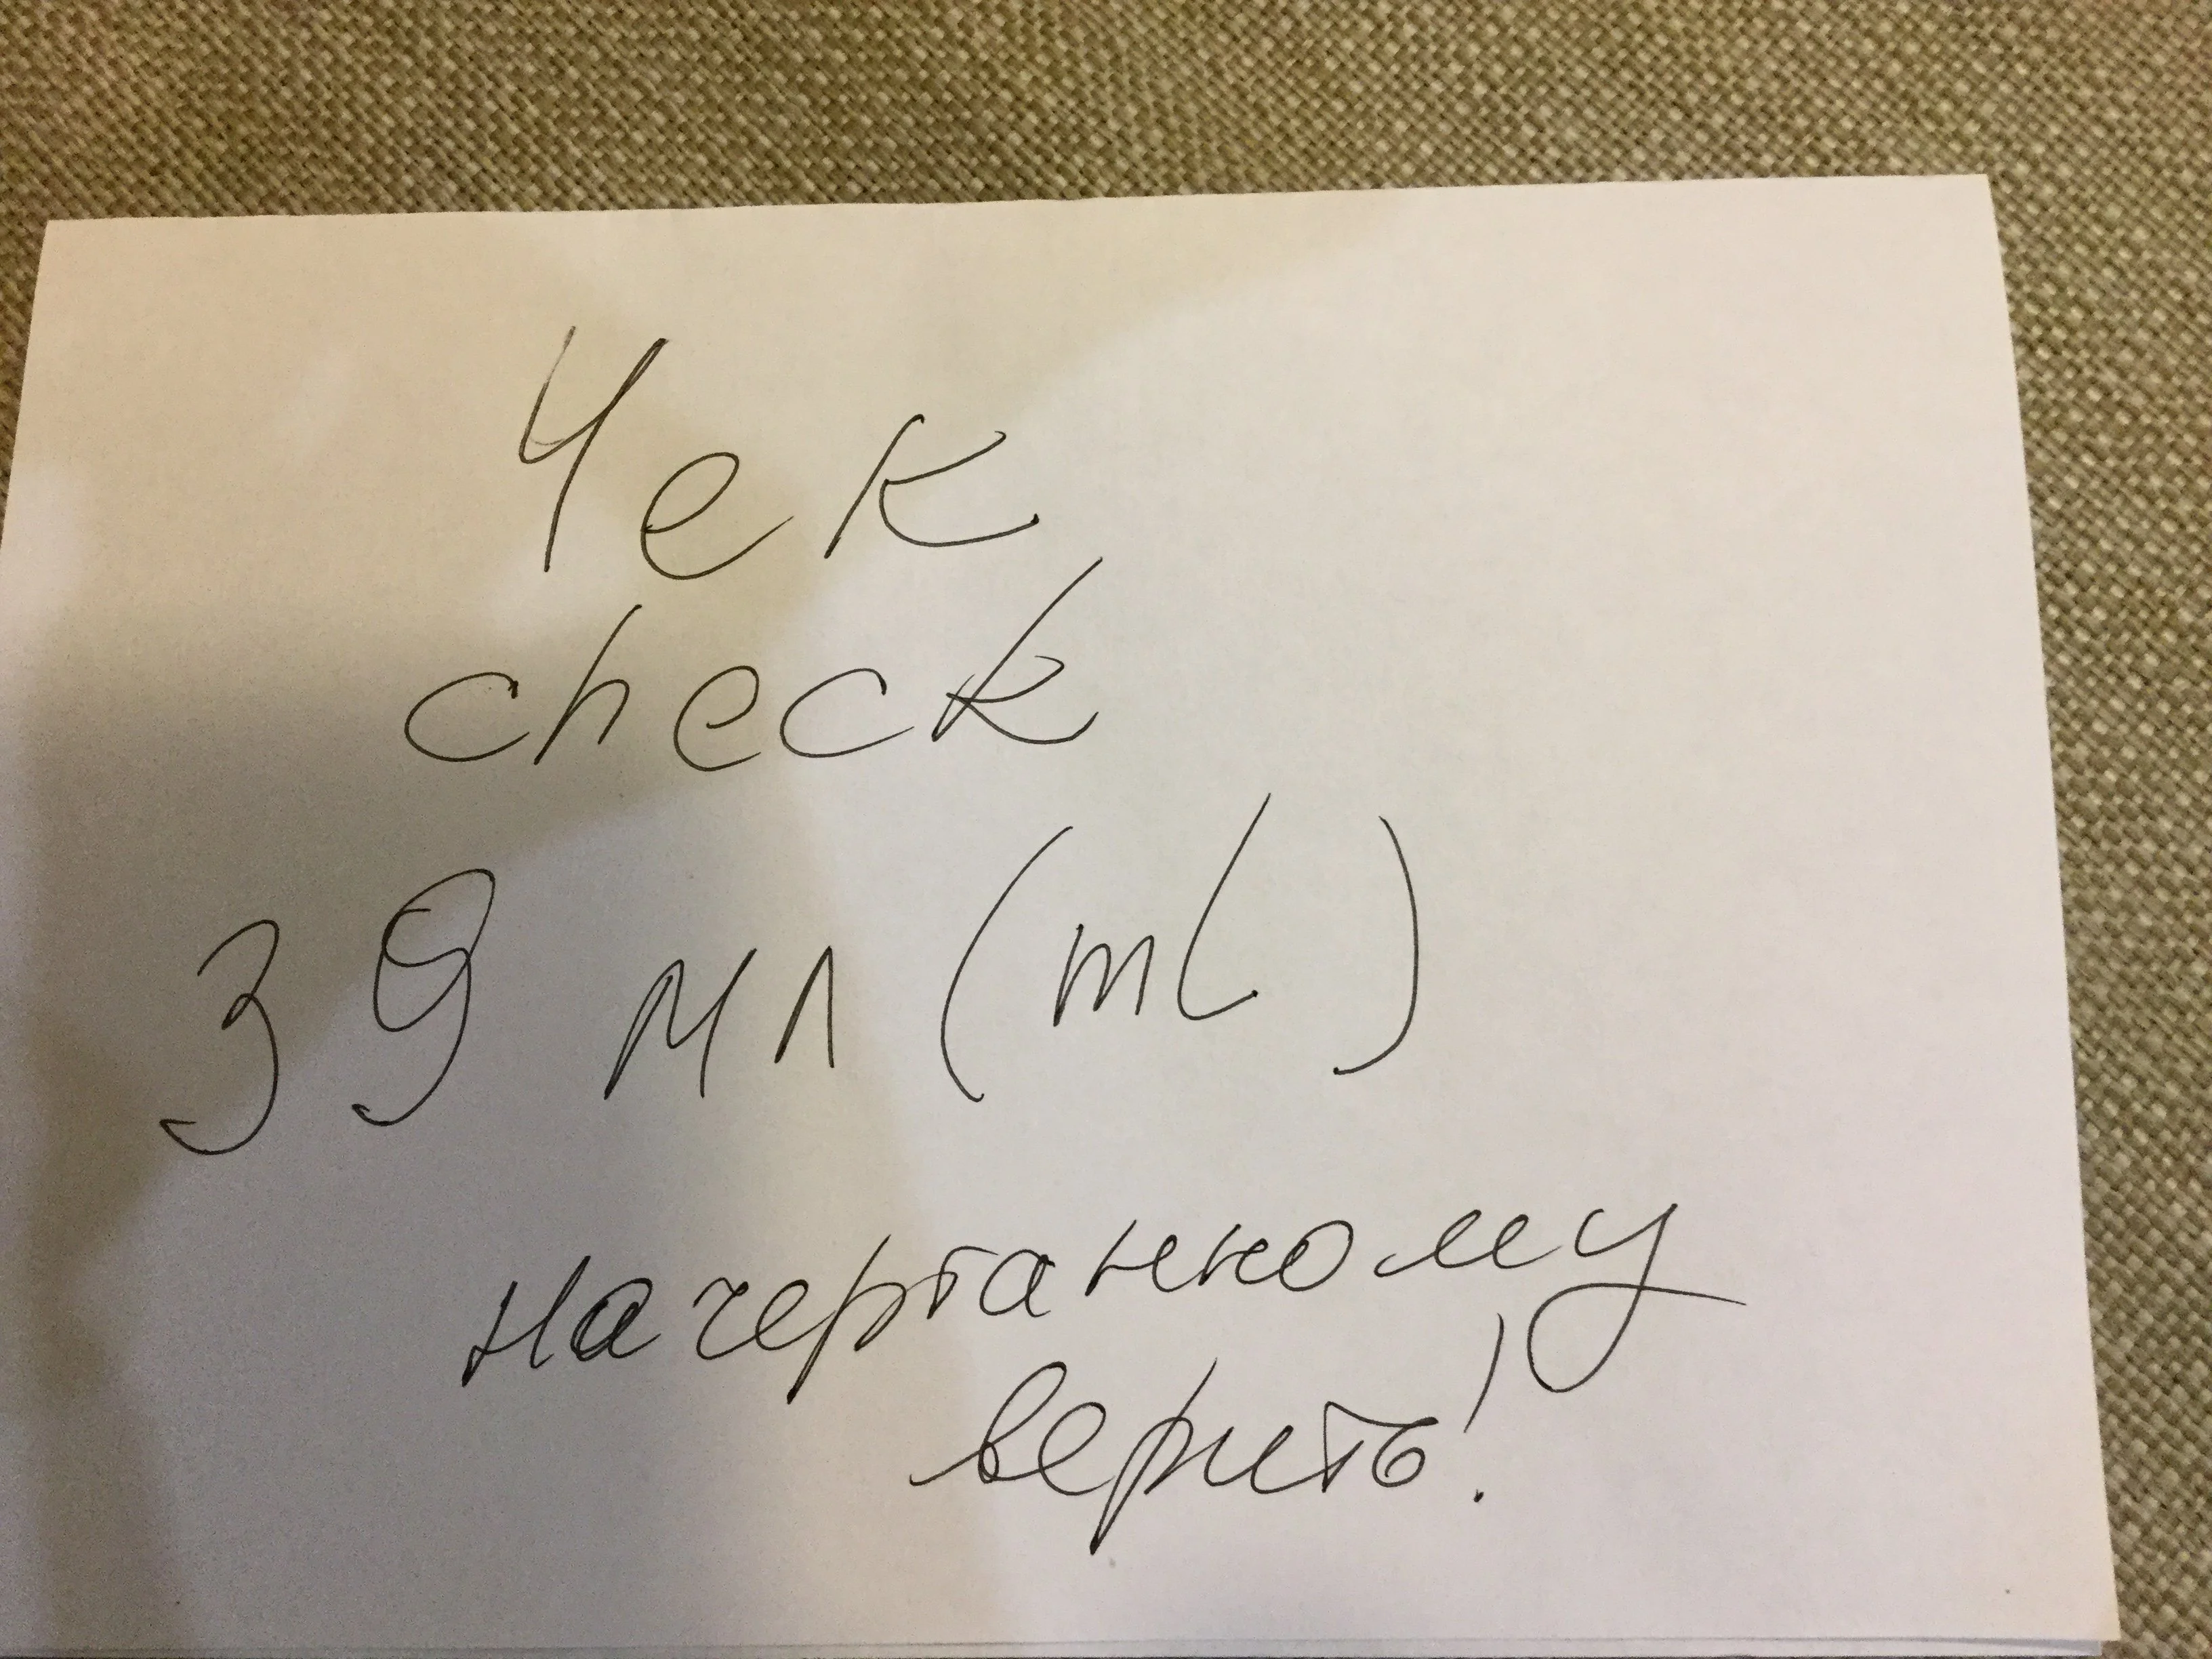 Чек
check
39 мл (mL)
начертанному
верить!